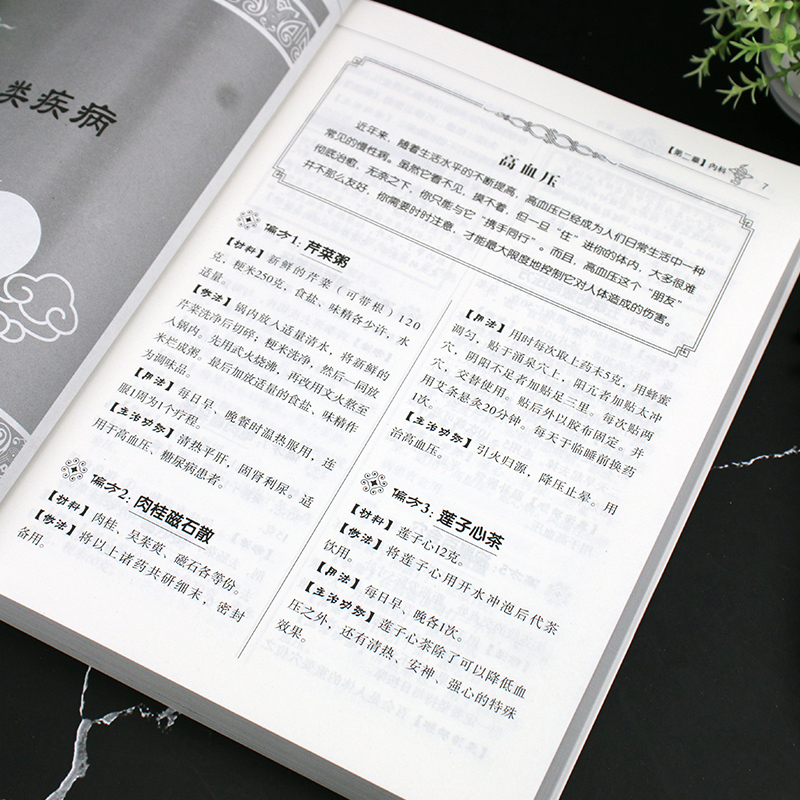 类疾病
【第二章】内科 7
高血压
近年来，随着生活水平的不断提高，高血压已经成为人们日常生活中一种
常见的慢性病。虽然它看不见、摸不着，但一旦“住”进你的体内，大多很难
彻底治愈。无奈之下，你只能与它“携手同行”。而且，高血压这个“朋友”
并不那么友好，你需要时时注意，才能最大限度地控制它对人体造成的伤害。
偏方1：芹菜粥
【材料】新鲜的芹菜（可带根）120
克，粳米250克，食盐、味精各少许，水
适量。
【做法】锅内放入适量清水，将新鲜的
芹菜洗净后切碎；粳米洗净，然后一同放
入锅内。先用武火烧沸，再改用文火熬至
米烂成粥。最后加放适量的食盐、味精作
为调味品。
【用法】每日早、晚餐时温热服用，连
服1周为1个疗程。
【主治功效】清热平肝，固肾利尿。适
用于高血压、糖尿病患者。
偏方2：肉桂磁石散
【材料】肉桂、吴茱萸、磁石各等份。
【做法】将以上诸药共研细末，密封
备用。
【用法】用时每次取上药末5克，用蜂蜜
调匀，贴于涌泉穴上，阳亢者加贴太冲
穴，阴阳不足者加贴足三里。每次贴两
穴，交替使用。贴后外以胶布固定。并
用艾条悬灸20分钟。每天于临睡前换药
1次。
【主治功效】引火归源，降压止晕。用
治高血压。
偏方3：莲子心茶
【材料】莲子心12克。
【做法】将莲子心用开水冲泡后代茶
饮用。
【用法】每日早、晚各1次。
【主治功效】莲子心茶除了可以降低血
压之外，还有清热、安神、强心的特殊
效果。